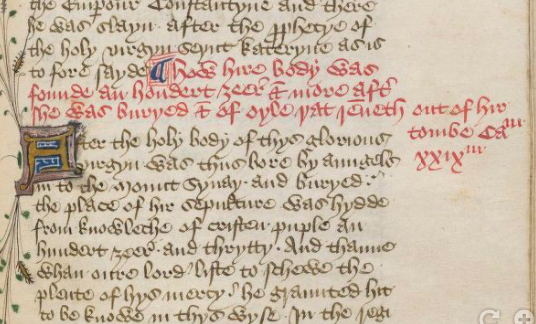 the Empour Constantyne and there
he was slayn. after the prophecye of
the holy virgyn seynt kateryne as is
to fore sayde ¶ how hire body was
founde an hondert zeer & more aftr
she was buryed & of oyle yat renneth out of hir
tombe Cam
xxixm
After the holy body of thys glorious
vyrgyn was thus bore by aungels
in to the Mount Synay. and buryed.
the place of hir sepulture was hydde
from knowleche of cristen puple an
hundert zeer. and thrytty. And thanne
whan oure lord liste to schewe the
plente of hys mercy he graunted hit
to be knowe in thys wyse. In the regi